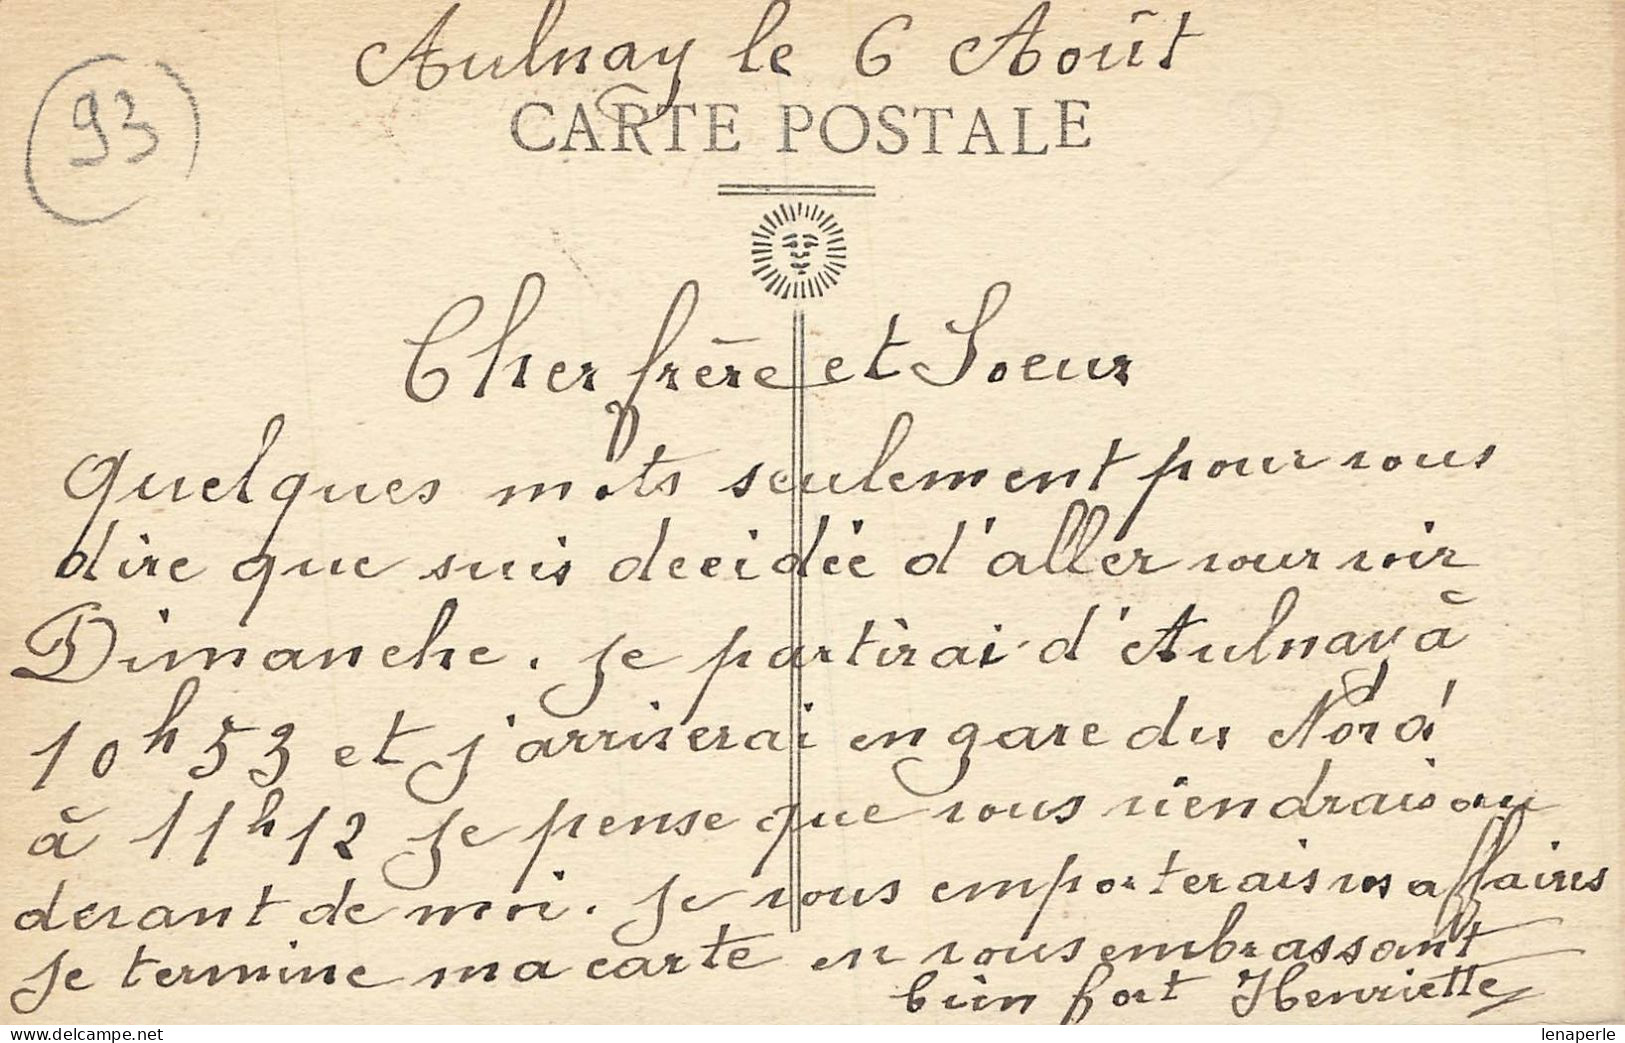 Aulnay le 6 Août
93
CARTE POSTALE
Cher frère et Soeur
quelques mots seulement pour vous
dire que suis decidée d'aller vour voir
Dimanche. Je partirai d'Aulnay à
10h53 et j'arriverai en gare du Nord
à 11h12 je pense que vous viendrais au
devant de moi. Je vous emporterais vos affaires
Je termine ma carte en vous embrassant
bien fort Henriette
www.delcampe.net
lenaperle